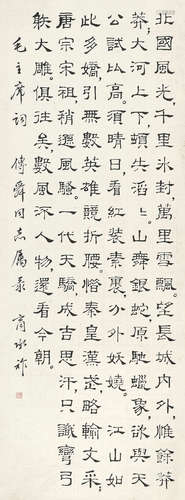 北國風光,千里冰封,萬里雪飄,望長城內外,惟餘莽
莽;大河上下,頓失滔滔,山舞銀蛇,原馳蠟象,欲與天
公試比高;須晴日,看紅裝素裹,分外妖嬈。 江山如
此多嬌,引無數英雄競折腰,惜秦皇漢武,略輸文采;
唐宗宋祖,稍遜風騷,一代天驕,成吉思汗,只識彎弓
躲大雕。俱往矣,數風流人物,還看今朝。
毛主席詞 傳舜同志屬录 商承祚